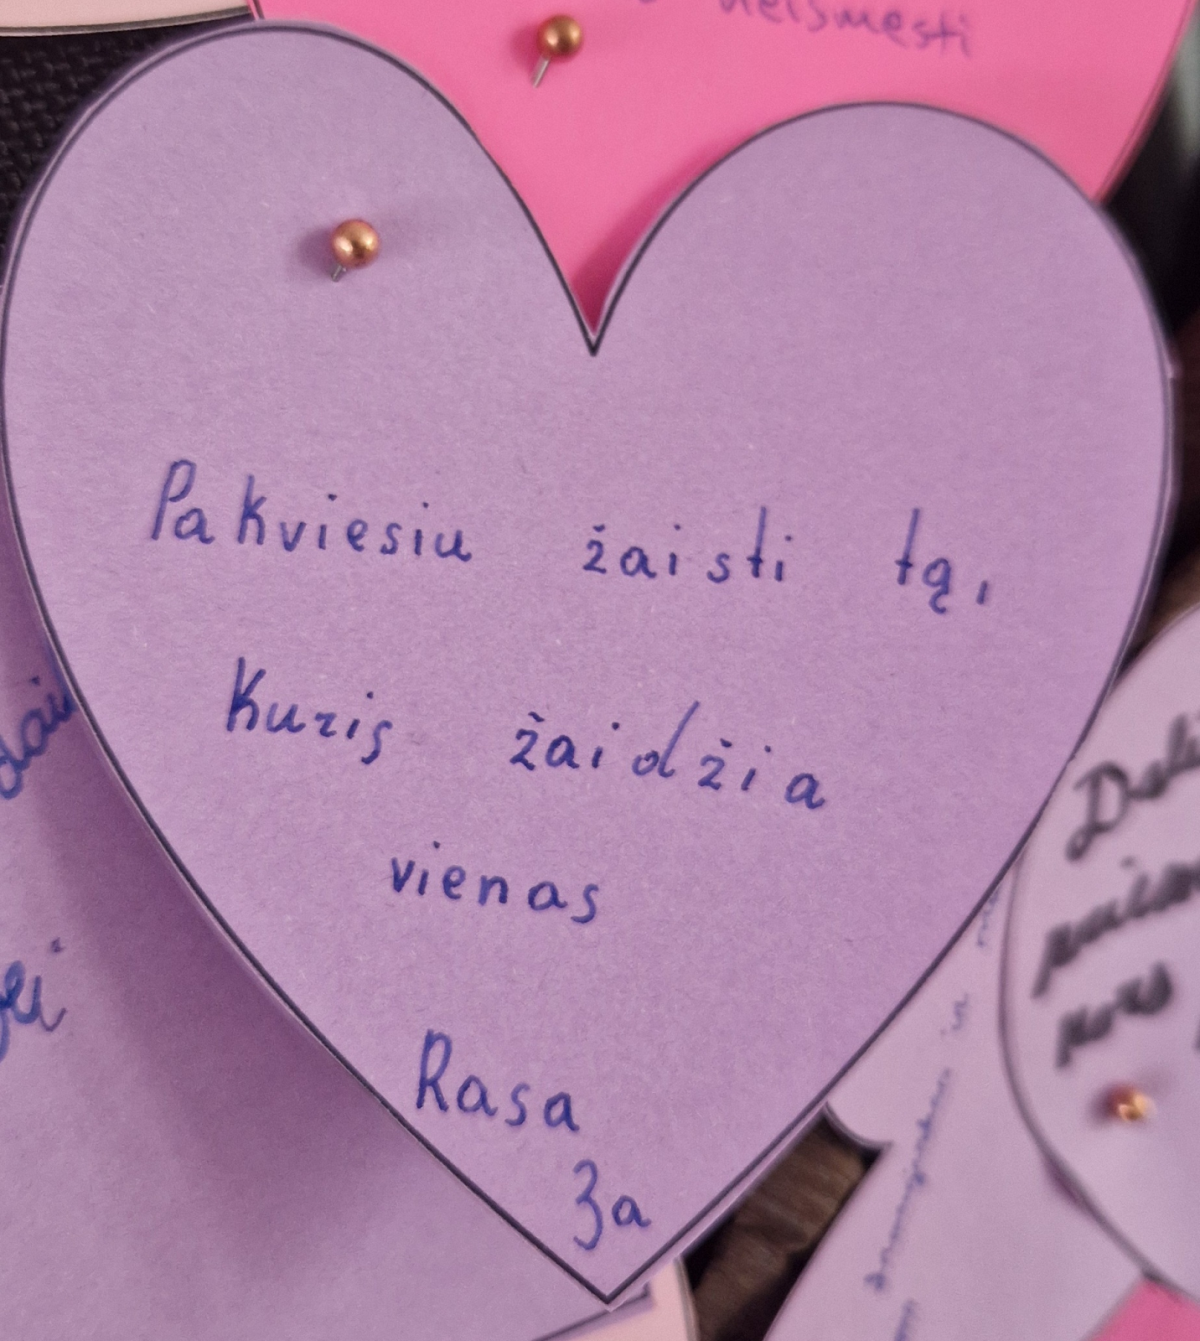 neismesti
Pakviesiu žaisti tą,
Kuris žaidžia
vienas
Rasa
3a